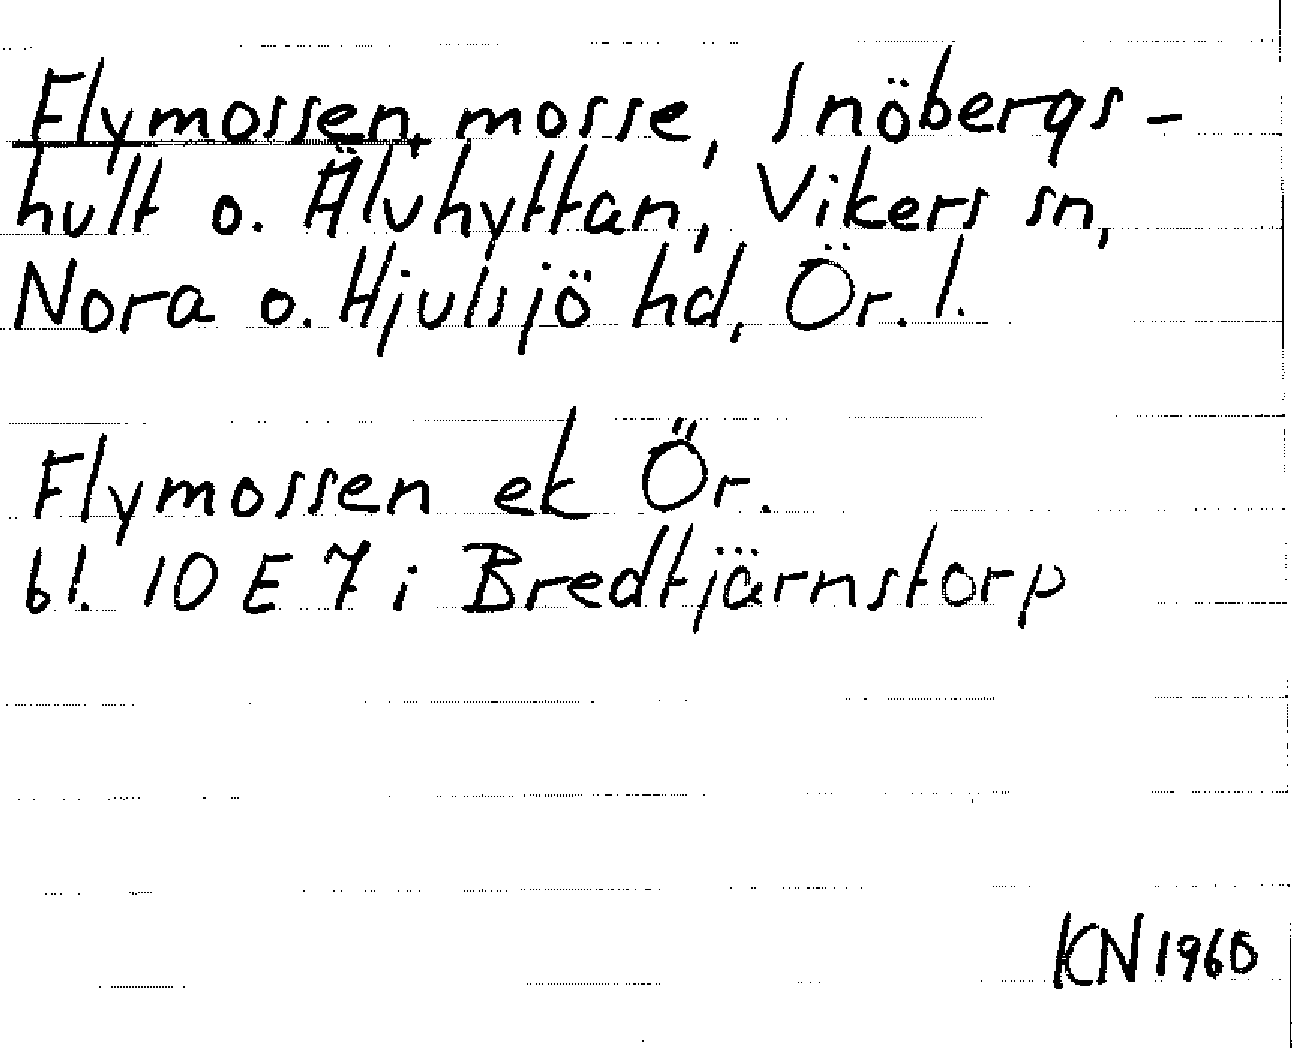 Flymossen, mosse, Snöbergs-
hult o. Älvhyttan, Vikers sn,
Nora o. Hjulsjö hd, Ör. l.
Flymossen ek Ör.
bl. 10 E 7 i Bredtjärnstorp
KN 1960